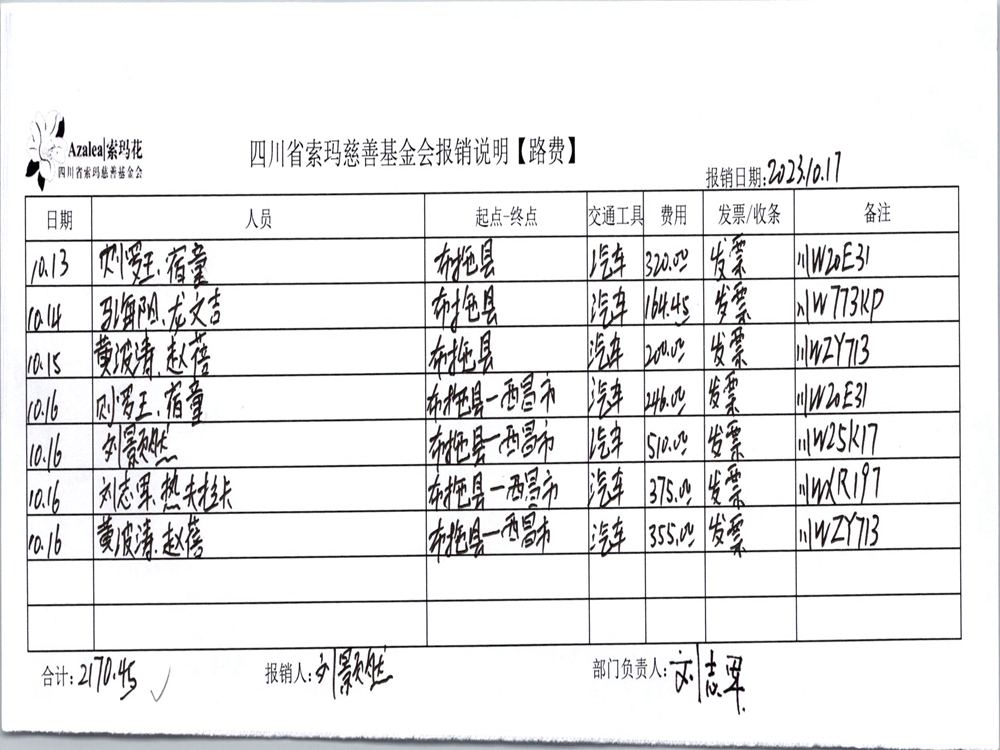 Azalea|索玛花
四川省索玛慈善基金会
四川省索玛慈善基金会报销说明【路费】
报销日期:2023.10.17
日期 人员 起点-终点 交通工具 费用 发票/收条 备注
10.13 则罗王、宿童 布拖县 汽车 320.00 发票 川W20E31
10.14 马海阳、龙文吉 布拖县 汽车 164.45 发票 川W773KP
10.15 黄波涛、赵蓓 布拖县 汽车 200.00 发票 川WZY713
10.16 则罗王、宿童 布拖县—西昌市 汽车 246.00 发票 川W20E31
10.16 刘景然 布拖县—西昌市 汽车 510.00 发票 川W25K17
10.16 刘志军、热夫拉卡 布拖县—西昌市 汽车 375.00 发票 川WXR197
10.16 黄波涛、赵蓓 布拖县—西昌市 汽车 355.00 发票 川WZY713
合计:2170.45 报销人:刘景然 部门负责人:刘志军